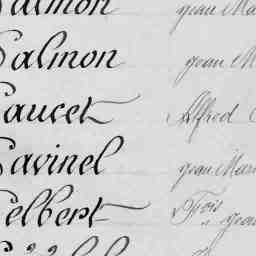 Salmon jean Ma
Salmon jean M
Saucet Alfred
Savinel jean Mari
Selbert Fçois jean